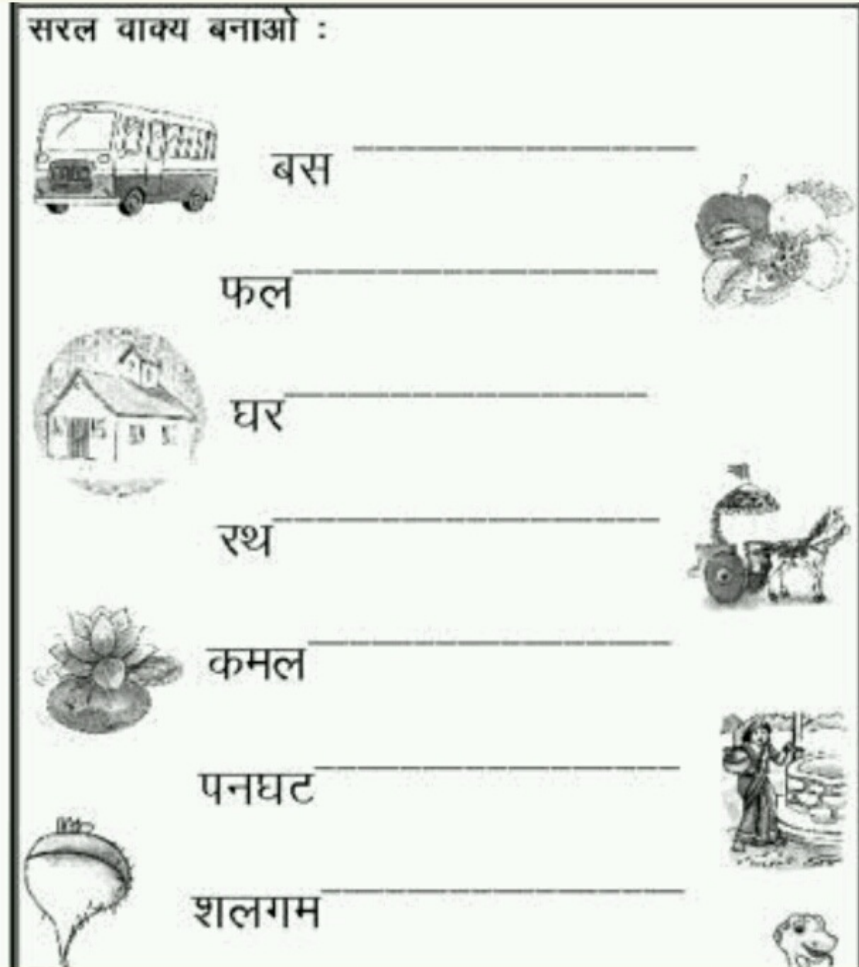 सरल वाक्य बनाओ :
बस
फल
घर
रथ
कमल
पनघट
शलगम